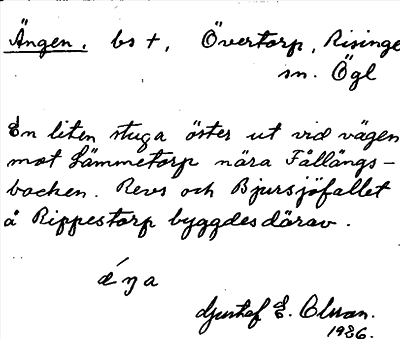 Ängen, bs +, Övertorp, Risinge
sn. Ögl
En liten stuga öster ut vid vägen
mot Lämmetorp nära Fållängs-
backen. Revs och Bjursjöfallet
å Rippestorp byggdes därav.
Gustaf E. Olsson.
1926.